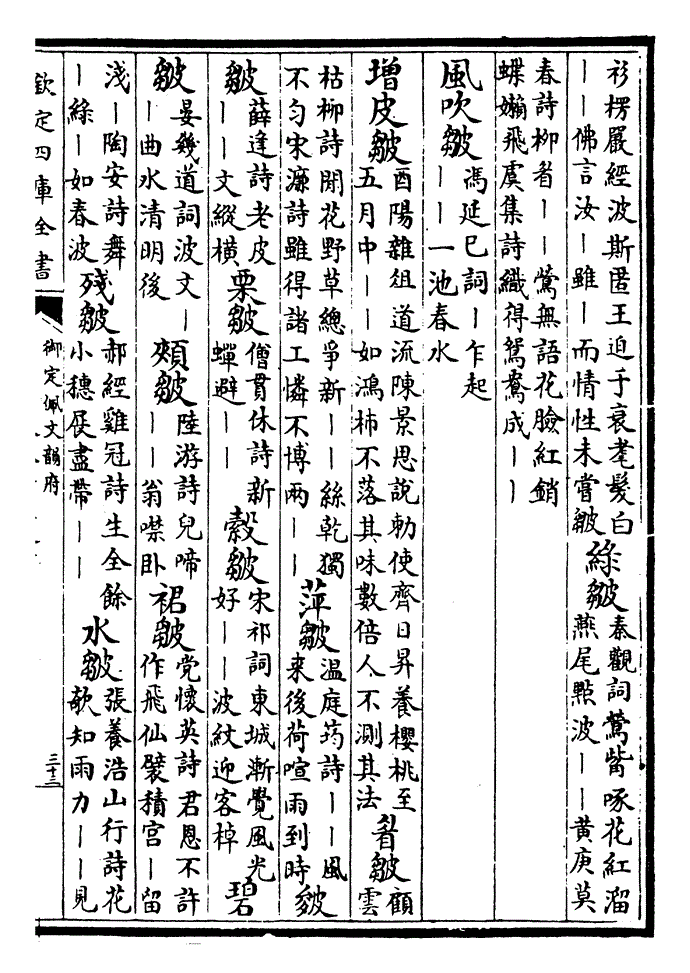 衫楞嚴經波斯匿王迫于衰耄髮白
——佛言汝—雖—而情性未嘗皺
綠皺
秦觀詞鶯觜啄花紅溜
燕尾點波——黄庚莫
春詩柳眉——鶯無語花臉紅銷
蝶嬾飛虞集詩織得鴛鴦成——
風吹皺
馮延巳詞—乍起
——一池春水
增皮皺
酉陽雜俎道流陳景思說勅使齊日昇養櫻桃至
五月中——如鴻柿不落其味數倍人不測其法
眉皺
顧
雲
枯柳詩閒花野草總爭新——絲乾獨
不勻宋濂詩雖得諸工憐不博兩——
萍皺
温庭筠詩——風
来後荷喧雨到時
皴
皺
薛逢詩老皮
——文縱横
栗皺
僧貫休詩新
蟬避——
縠皺
宋祁詞東城漸覺風光
好——波紋迎客棹
碧
皺
晏幾道詞波文—
—曲水清明後
頰皺
陸游詩兒啼
——翁噤卧
裙皺
党懷英詩君恩不許
作飛仙襞積宫—留
淺—陶安詩舞
—綠—如春波
殘皺
郝經雞冠詩生全餘
小穗展盡帶——
水皺
張養浩山行詩花
欹知雨力——見
欽定四庫全書
御定佩文韻府
三十三